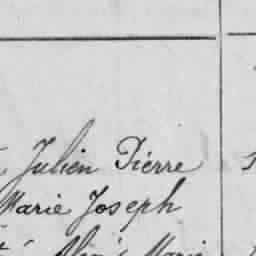 Julien Pierre
Marie Joseph
Marie